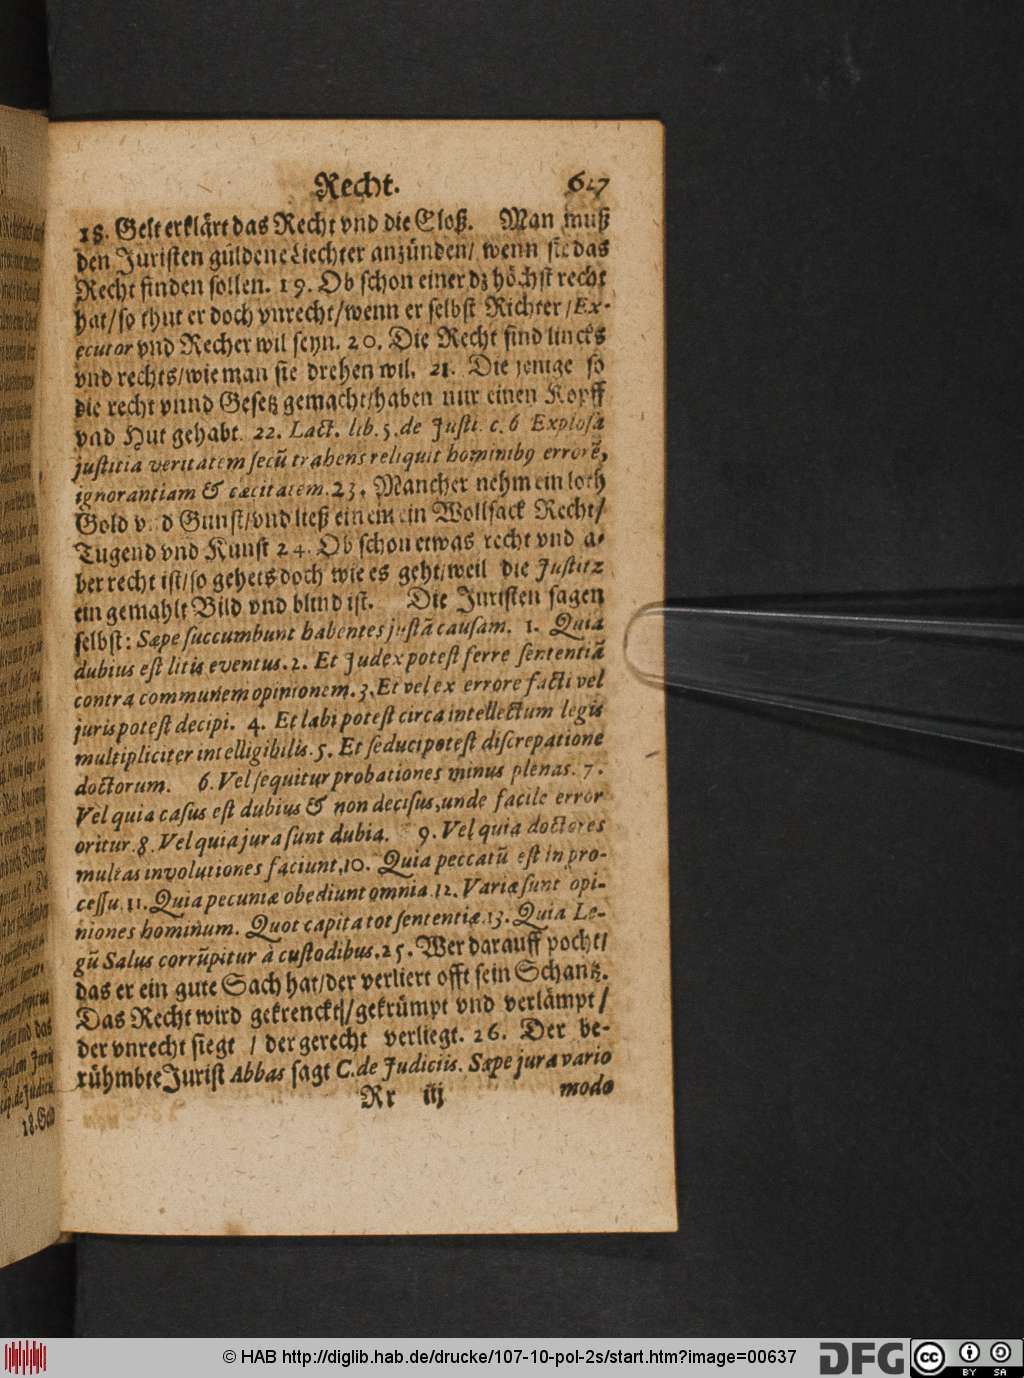 Recht. 617
18. Gelt erklärt das Recht vnd die Gloß. Man muß
den Juristen güldene Liechter anzünden/ wenn sie das
Recht finden sollen. 19. Ob schon einer dz höchst recht
hat/so thut er doch vnrecht/wenn er selbst Richter/Ex-
ecutor vnd Recher wil seyn. 20. Die Recht sind lincks
vnd rechts/wie man sie drehen wil. 21. Die jenige so
die recht vnnd Gesetz gemacht/haben nur einen Kopff
vnd Hut gehabt. 22. Lact. lib. 5. de Justi. c. 6 Explosa
justitia veritatem secũ trahens reliquit hominibꝰ errorẽ,
ignorantiam & cæcitatem. 23. Mancher nehm ein loth
Gold vnd Gunst/vnd ließ einem ein Wollsack Recht/
Tugend vnd Kunst 24. Ob schon etwas recht vnd a-
ber recht ist/so gehets doch wie es geht/weil die Justitz
ein gemahlt Bild vnd blind ist. Die Juristen sagen
selbst: Sæpe succumbunt habentes justã causam. 1. Quia
dubius est litis eventus. 2. Et Judex potest ferre sententiã
contra communem opinionem. 3. Et vel ex errore facti vel
juris potest decipi. 4. Et labi potest circa intellectum legis
multipliciter intelligibilis. 5. Et seduci potest discrepatione
doctorum. 6. Vel sequitur probationes minus plenas. 7.
Vel quia casus est dubius & non decisus, unde facile error
oritur. 8. Vel quia jura sunt dubia. 9. Vel quia doctores
multas involutiones faciunt, 10. Quia peccatũ est in pro-
cessu. 11. Quia pecuniæ obediunt omnia. 12. Variæ sunt opi-
niones hominum. Quot capita tot sententiæ. 13. Quia Le-
gũ Salus corrũpitur à custodibus. 25. Wer darauff pocht/
das er ein gute Sach hat/der verliert offt sein Schantz.
Das Recht wird gekrenckt/gekrümpt vnd verlämpt/
der vnrecht siegt / der gerecht verliegt. 26. Der be-
rühmbte Jurist Abbas sagt C. de Judiciis. Sæpe jura vario
Rr iij modo
18. Gel
© HAB http://diglib.hab.de/drucke/107-10-pol-2s/start.htm?image=00637
DFG cc BY SA